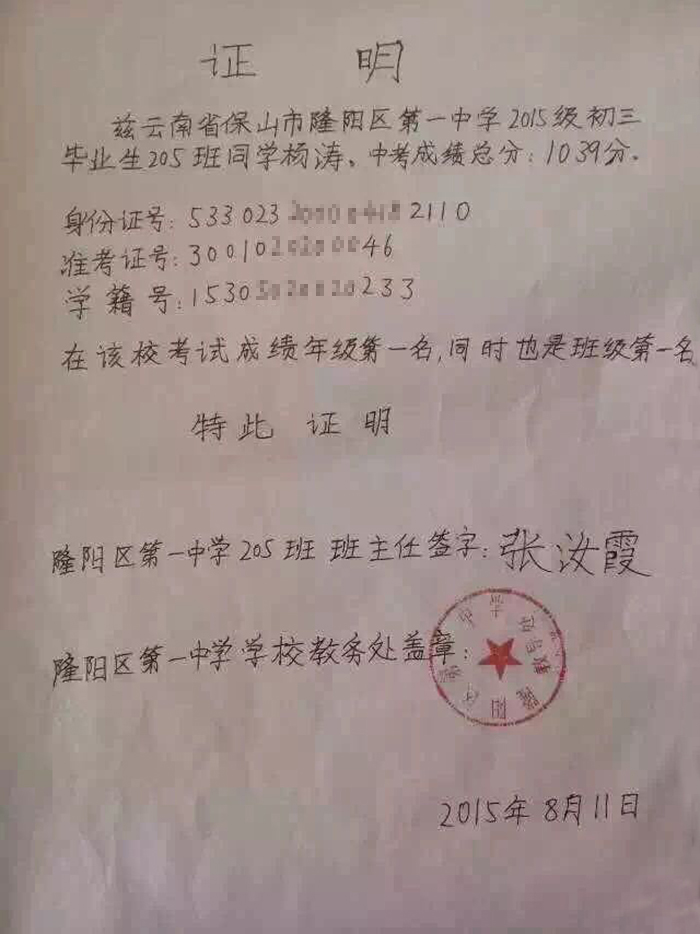 证 明
兹云南省保山市隆阳区第一中学2015级初三
毕业生205班同学杨涛、中考成绩总分：1039分。
身份证号：533023 2110
准考证号：30010 46
学籍号：1530 233
在该校考试成绩年级第一名，同时也是班级第一名
特此 证明
隆阳区第一中学205班 班主任签字：张汝霞
隆阳区第一中学学校教务处盖章：
2015年8月11日